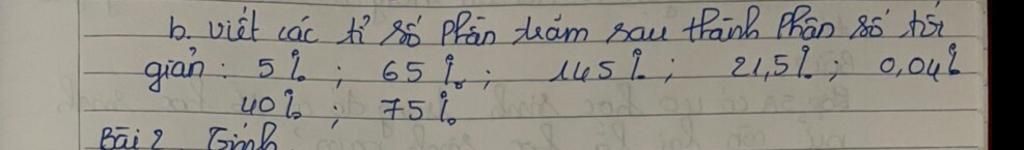 b. viết các tỉ số phần trăm sau thành phân số tối
giản: 5%; 65%; 145%; 21,5%; 0,04%
40%; 75%
Bài 2 Tính